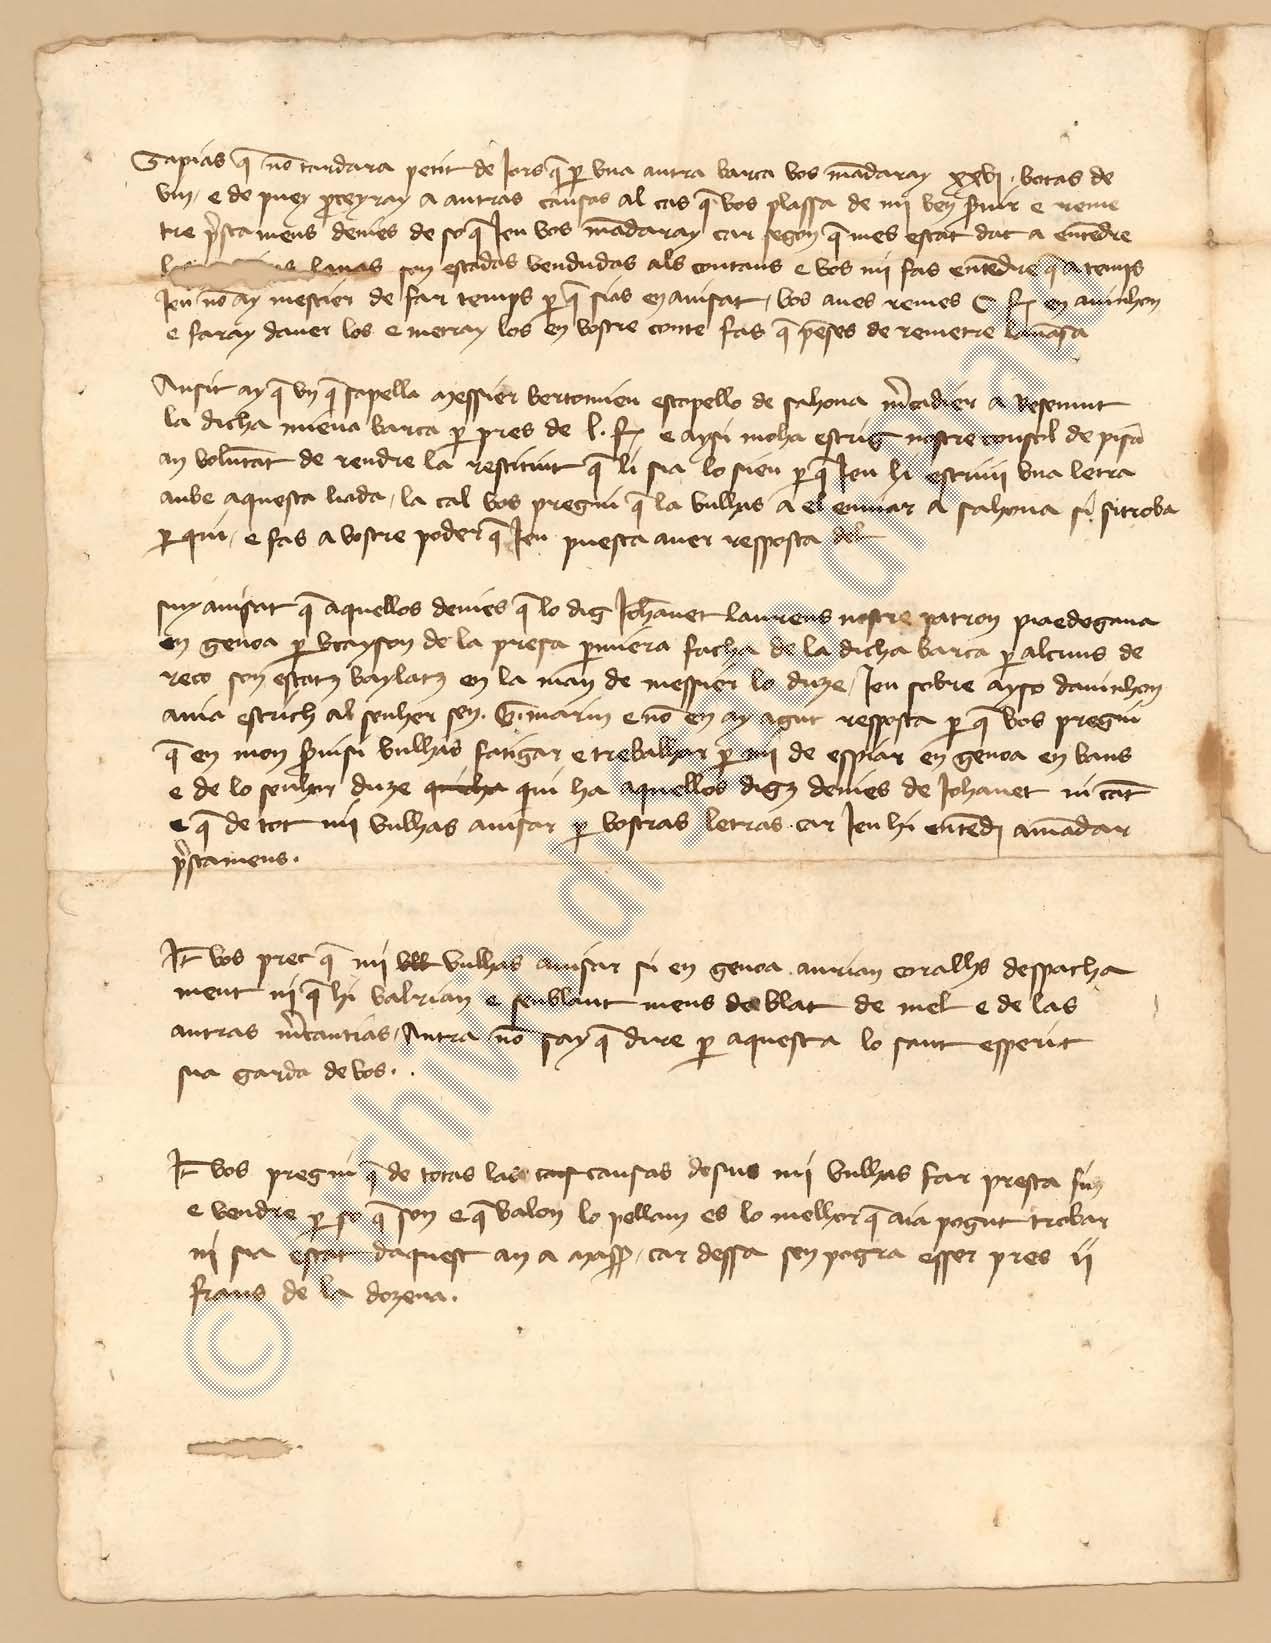 Sapias q̄ nō tardara petit de Jors q̄ p vna autra barca vos mādaray xxvj botas de
vin / e de puey p̄ceyray a autras causas al cas q̄ vos plassa de mi ben s̄uir e reme
tre p̄stamens deniēs de so q̄ Jeu vos mādaray car segon q̄ mes estat dat a entēdre
lanas son estadas vendudas als contans e vos mi fas entēdre q̄ a temps
Jeu nō ay mestier de far temps p q̄ sias en auisat / vos aues remes C ff en auinhon
e faray dauer los e metray los en vostre conte fas q̄ pēses de remetre lauāsa
Ausit ay q̄ vn q̄ sapella messier bertomieu escapello de sahona m̄cadier a
la dicha nueua barca p pres de l. ff e aysi moha estrig nostre consol de pisa
ay volūtat de rendre la restituit q̄ li sia lo sieu p q̄ Jeu hi estriui vna letra
anbe aquesta liada / la cal vos pregui q̄ la vulhas a el enuiar a sahona si si troba
p qui / e fas a vostre poder q̄ Jeu puesca auer resposta del
suy auisat q̄ aquellos deniēs q̄ lo dig Johanet laurens nostre patron
en genoa p vcayson de la presa p̄miera facha de la dicha barca p alcuns de
reco son estatz baylatz en la man de messier lo duze / Jeu sobre ayso dauinhon
auia estrich al senher sen. G. marin e nō en ay agut resposta p q̄ vos pregui
q̄ en mon s̄uisi vulhas fatigar e treballhar p mi de espiar en genoa en bans
e de lo senhor duze qui ha aquellos digz deniēs de Johanet ni cāt
e q̄ de tot mi vulhas auisar p vostras letras. car Jeu hi entēdj a mādar
p̄stamens.
Jt̄ vos prec q̄ mi vulhas auisar si en genoa aurian coralhs despacha
ment ni q̄ hi valrian e senblant mens de blat de mel e de las
autras m̄cantias / Autra nō say q̄ dire p aquesta lo sant esperit
sia garda de vos.
Jt̄ vos pregui q̄ de totas las causas desus mi vulhas far presta fin
e vendre p so q̄ son e q̄ valon lo pellam es lo melhor q̄ aia pogut trobar
ni sia estat daquest an a car dessa sen pogra esser pres ij
frans de la dozena.
© Archivio di Stato di Prato